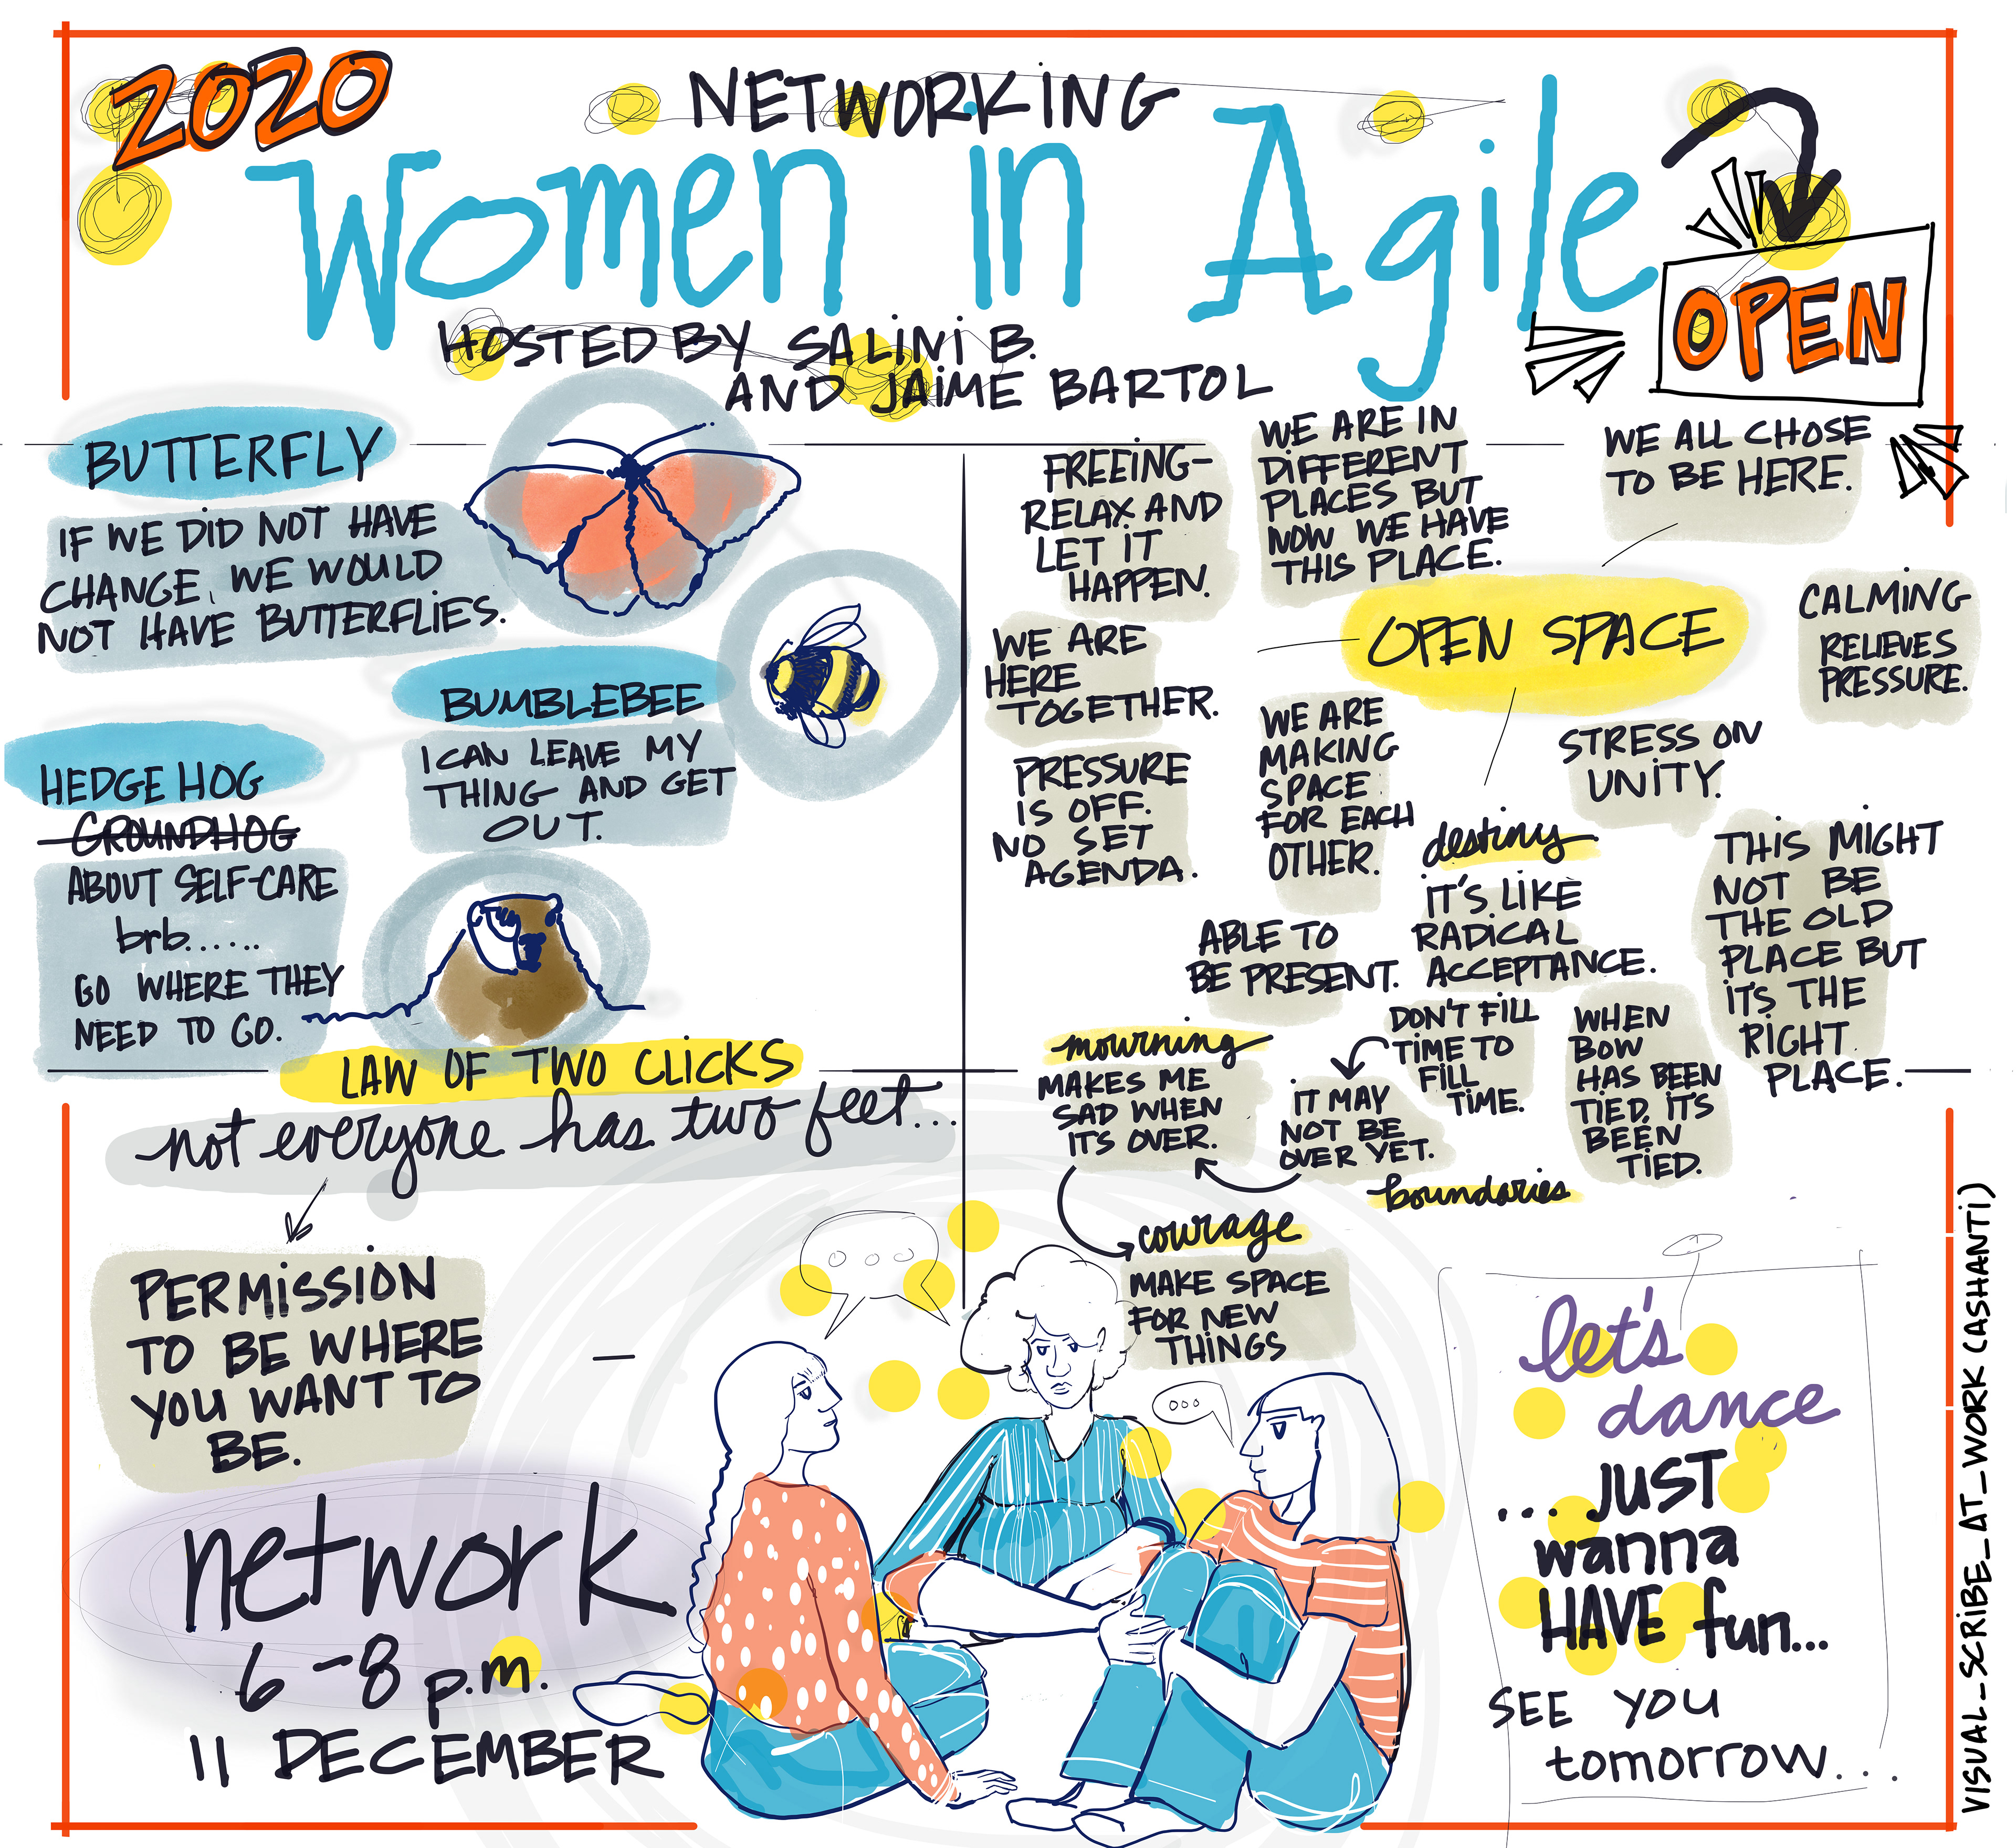 2020
NETWORKING
Women in Agile
OPEN
HOSTED BY SALINI B.
AND JAIME BARTOL
BUTTERFLY
IF WE DID NOT HAVE
CHANGE, WE WOULD
NOT HAVE BUTTERFLIES.
BUMBLEBEE
I CAN LEAVE MY
THING AND GET
OUT.
HEDGE HOG
GROUNDHOG
ABOUT SELF-CARE
brb......
GO WHERE THEY
NEED TO GO.
LAW OF TWO CLICKS
not everyone has two feet...
PERMISSION
TO BE WHERE
YOU WANT TO
BE.
network
6-8 p.m.
11 DECEMBER
FREEING-
RELAX AND
LET IT
HAPPEN.
WE ARE IN
DIFFERENT
PLACES BUT
NOW WE HAVE
THIS PLACE.
WE ALL CHOSE
TO BE HERE.
OPEN SPACE
CALMING
RELIEVES
PRESSURE.
WE ARE
HERE
TOGETHER.
WE ARE
MAKING
SPACE
FOR EACH
OTHER.
STRESS ON
UNITY.
PRESSURE
IS OFF.
NO SET
AGENDA.
destiny
IT'S LIKE
RADICAL
ACCEPTANCE.
THIS MIGHT
NOT BE
THE OLD
PLACE BUT
ITS THE
RIGHT
PLACE.
ABLE TO
BE PRESENT.
DON'T FILL
TIME TO
FILL
TIME.
WHEN
BOW
HAS BEEN
TIED, IT'S
BEEN
TIED.
mourning
MAKES ME
SAD WHEN
IT'S OVER.
IT MAY
NOT BE
OVER YET.
boundaries
courage
MAKE SPACE
FOR NEW
THINGS
let's
dance
... JUST
wanna
HAVE fun...
SEE YOU
tomorrow...
VISUAL_SCRIBE_AT_WORK (ASHANTI)